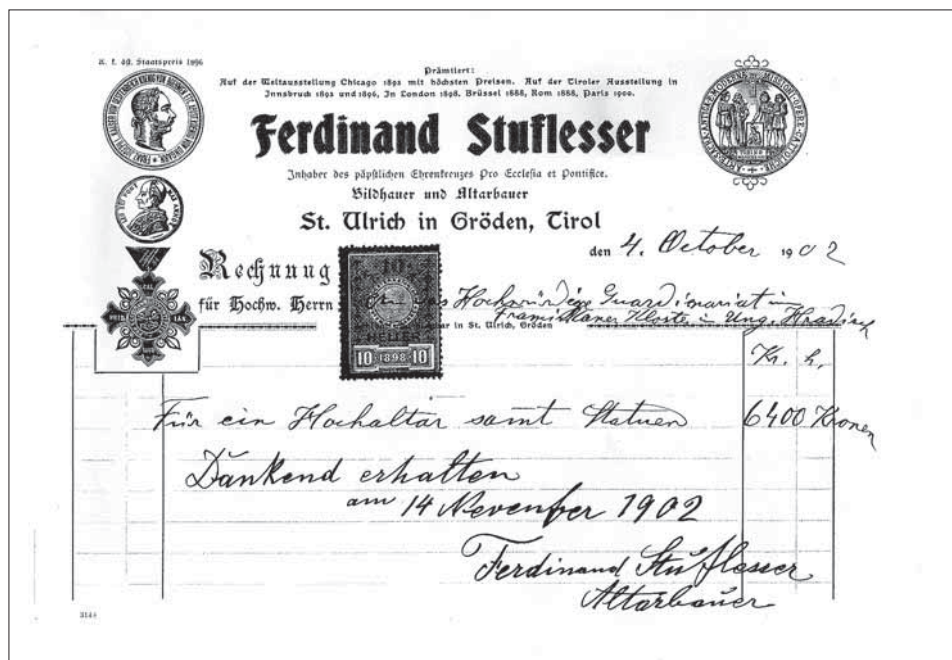 K. k. öst. Staatspreis 1896
Prämiiert:
Auf der Weltausstellung Chicago 1893 mit höchsten Preisen. Auf der Tiroler Ausstellung in
Innsbruck 1893 und 1896, In London 1898. Brüssel 1888, Rom 1888, Paris 1900.
Ferdinand Stuflesser
Inhaber des päpstlichen Ehrenkreuzes Pro Ecclesia et Pontifice.
Bildhauer und Altarbauer
St. Ulrich in Gröden, Tirol
den 4. October 1902
Rechnung
für Hochw. Herrn
An das Hochwürdige Guardianariat im
Franziskaner Kloster in Ung. Hradisch
in St. Ulrich, Gröden
10
HELLER
10 1898 10
Kr. h.
Für ein Hochaltar samt Statuen 6400 Kronen
Dankend erhalten
am 14 Nevember 1902
Ferdinand Stuflesser
Altarbauer